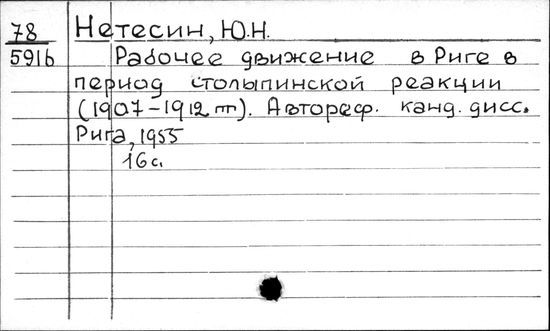 78 Нетесин, Ю.Н.
5916 Рабочее движение в Риге в
период столыпинской реакции
(1907-1912 гг). Автореф. канд. дисс.
Рига, 1955
16 с.